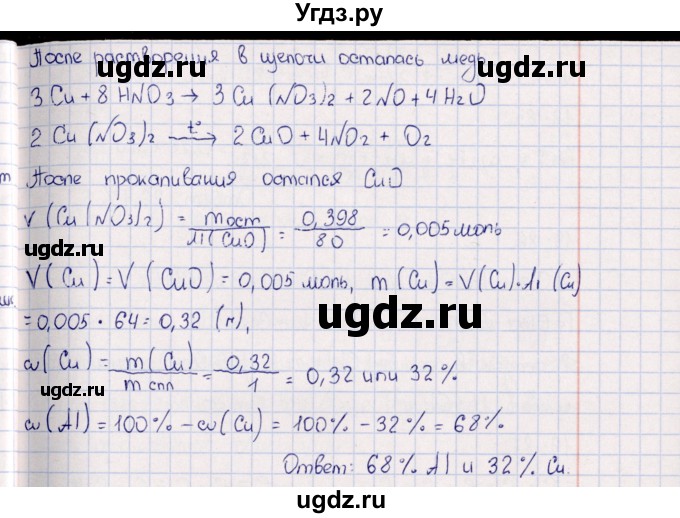 Угдз.ру
После растворения в щелочи осталась медь
ugdz.ru ugdz.ru
3 Cu + 8 HNO3 → 3 Cu (NO3)2 + 2NO + 4H2O
2 Cu (NO3)2 t° → 2 CuO + 4NO2 + O2
После прокаливания остался CuO
ν (Cu(NO3)2) = mост / M(CuO) = 0,398 / 80 = 0,005 моль
ugdz.ru
ν(Cu) = ν (CuO) = 0,005 моль, m (Cu) = ν(Cu)·M (Cu)
= 0,005 · 64 = 0,32 (г),
ugdz.ru
ω(Cu) = m (Cu) / m спл = 0,32 / 1 = 0,32 или 32 %
ω (Al) = 100% - ω(Cu) = 100% - 32% = 68%
Ответ: 68% Al и 32% Cu.
ugdz.ru ugdz.ru
ugdz.ru